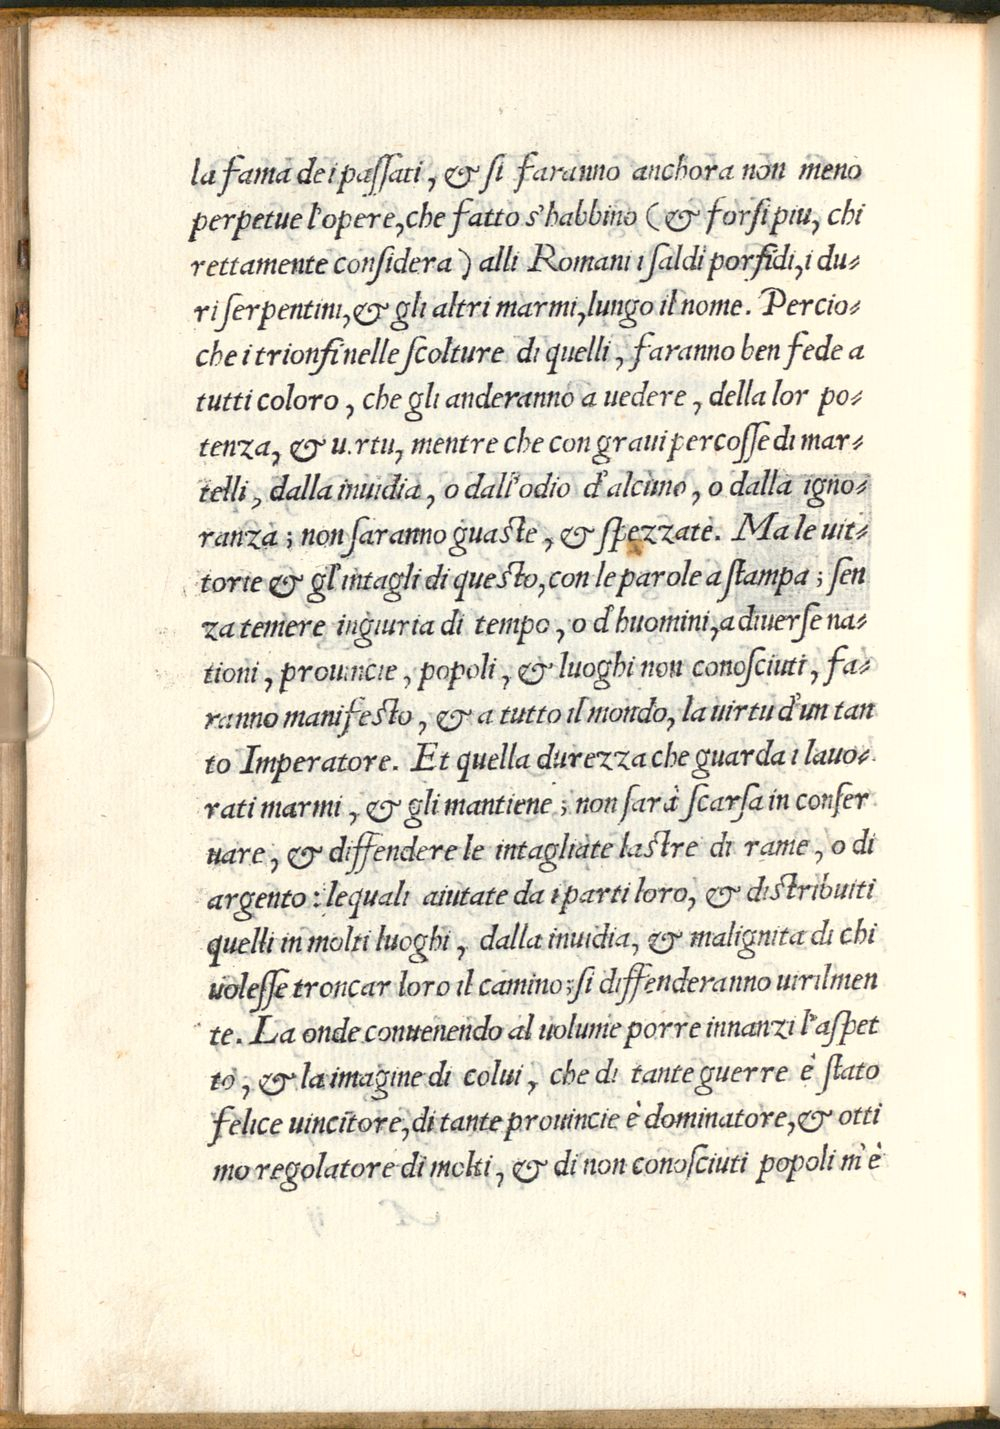 la fama de i passati, & si faranno anchora non meno
perpetue l'opere, che fatto s'habbino (& forsi piu, chi
rettamente considera) alli Romani i saldi porfidi, i du-
ri serpentini, & gli altri marmi, lungo il nome. Percio-
che i trionfi nelle scolture di quelli, faranno ben fede a
tutti coloro, che gli anderanno a uedere, della lor po-
tenza, & uirtu, mentre che con graui percosse di mar-
telli, dalla inuidia, o dall'odio d'alcuno, o dalla igno-
ranza; non saranno guaste, & spezzate. Ma le uit-
torie & gl'intagli di questo, con le parole a stampa; sen
za temere ingiuria di tempo, o d'huomini, a diuerse na-
tioni, prouincie, popoli, & luoghi non conosciuti, fa-
ranno manifesto, & a tutto il mondo, la uirtu d'un tan
to Imperatore. Et quella durezza che guarda i lauo-
rati marmi, & gli mantiene; non sarà scarsa in conser
uare, & diffendere le intagliate lastre di rame, o di
argento: lequali aiutate da i parti loro, & distribuiti
quelli in molti luoghi, dalla inuidia, & malignita di chi
uolesse troncar loro il camino; si diffenderanno uirilmen
te. La onde conuenendo al uolume porre innanzi l'aspet
to, & la imagine di colui, che di tante guerre è stato
felice uincitore, di tante prouincie è dominatore, & otti
mo regolatore di molti, & di non conosciuti popoli m'è